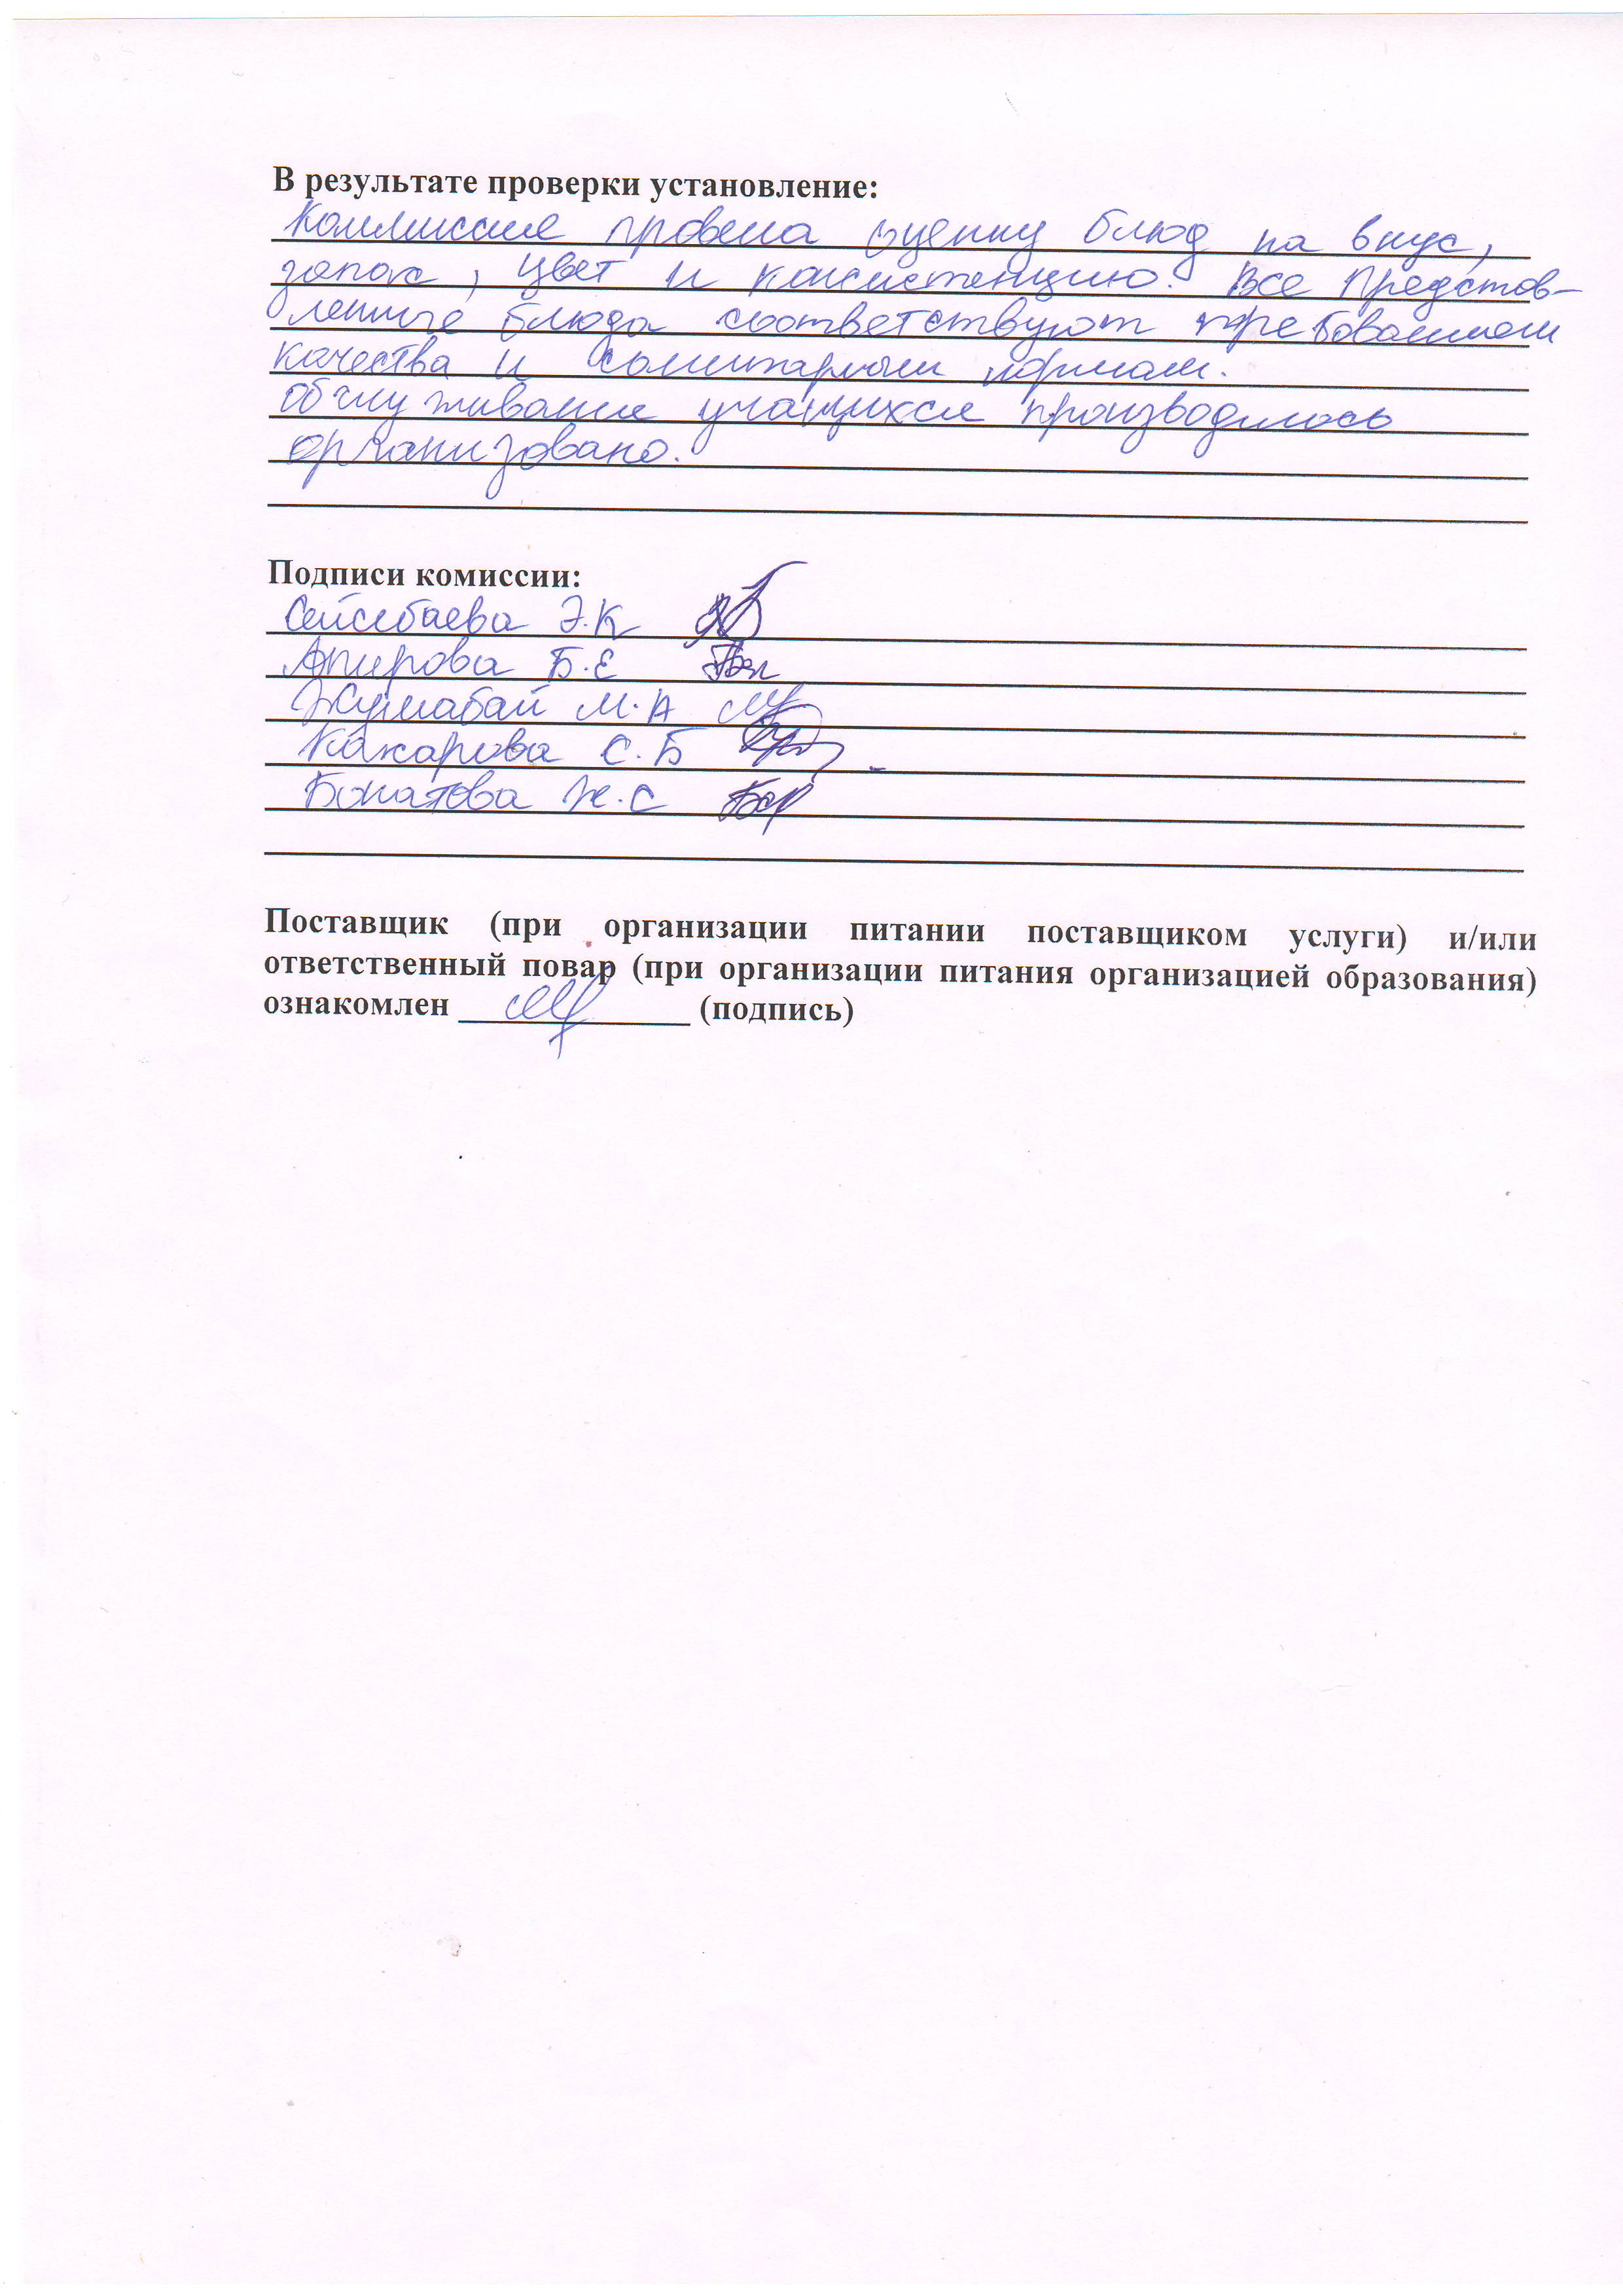 В результате проверки установление:
Коммиссия провела оценку блюд на вкус,
запах, цвет и консистенцию. Все представ-
ленные блюда соответствуют требованием
качества и санитарным нормам.
обслуживание учащихся производилось
организовано.
Подписи комиссии:
Сейсебаева Э.К
Апирова Б.Е
Жумабай М.А
Кажарова С.Б
Бокатова Ж.С
Поставщик (при организации питании поставщиком услуги) и/или
ответственный повар (при организации питания организацией образования)
ознакомлен (подпись)